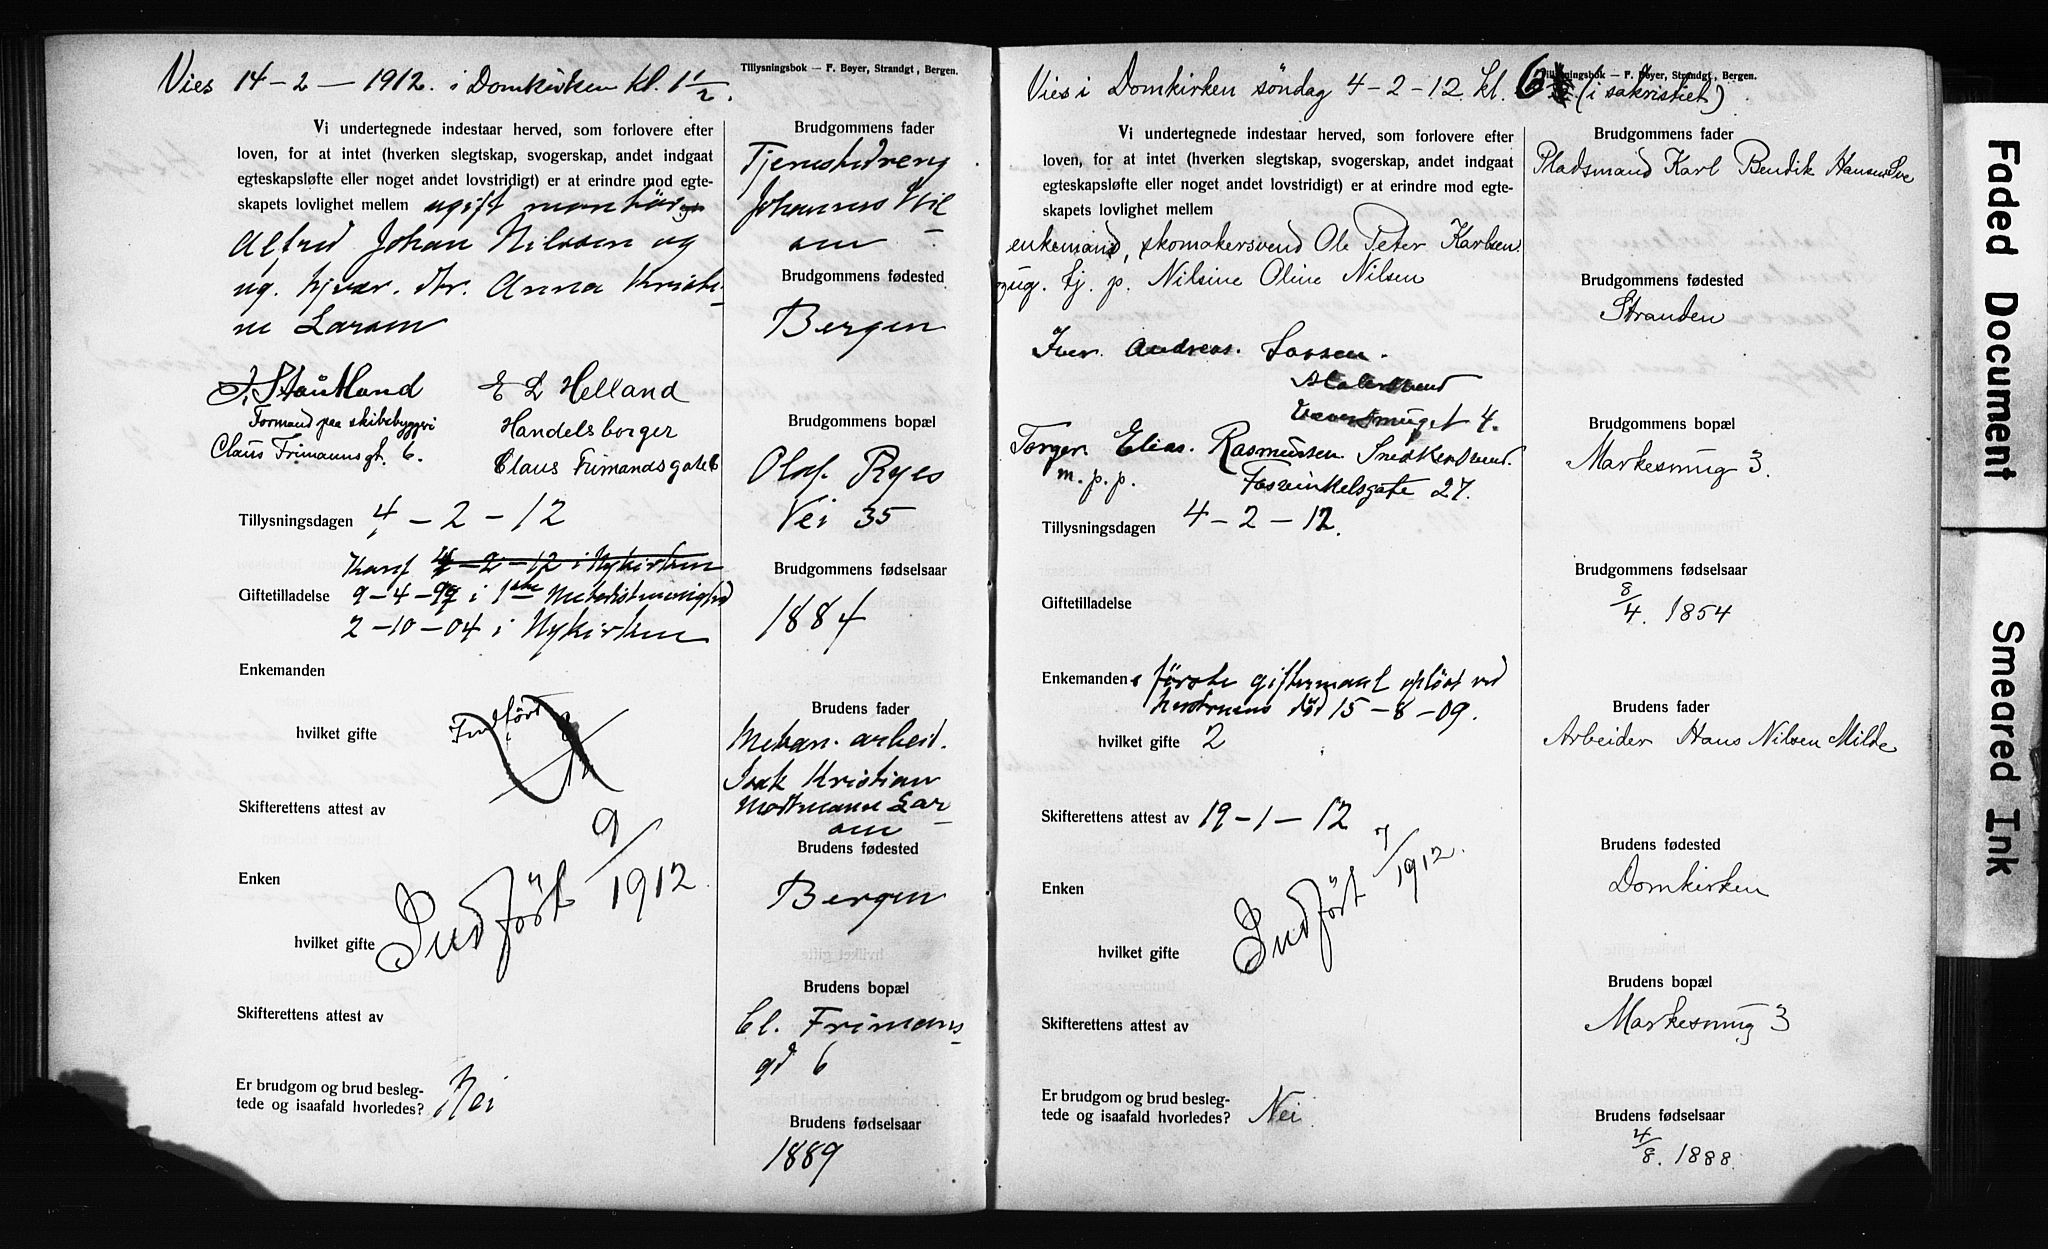 Vies 14-2-1912. i Domkirken kl. 1 1/2.
Tillysningsbok — F. Bøyer, Strandgt., Bergen.
Vi undertegnede indestaar herved, som forlovere efter
loven, for at intet (hverken slegtskap, svogerskap, andet indgaat
egteskapsløfte eller noget andet lovstridigt) er at erindre mod egte-
skapets lovlighet mellem ugift montør
Alfred Johan Nilssen og
ug. hjvær. dtr. Anna Kristi-
ne Larsen
E L Helland
Formand paa skibsbyggeri
Handelsborger
Claus Frimannsgt. 6.
Claus Frimandsgate 6
Tillysningsdagen 4-2-12
Konf 4-2-12 i Nykirken
Giftetilladelse 9-4-99 i 1ste Metodistmenighed
2-10-04 i Nykirken
Enkemanden
hvilket gifte
Indført
Skifterettens attest av
Enken
Indført 9/1912.
hvilket gifte
Skifterettens attest av
Er brudgom og brud besleg-
tede og isaafald hvorledes? Nei
Brudgommens fader
Tjenestedreng
Johannes Nil-
sen
Brudgommens fødested
Bergen
Brudgommens bopæl
Olaf Ryes
Vei 35
Brudgommens fødselsaar
1884
Brudens fader
Mekan. arbeid.
Isak Kristian
Mortmann Lar-
sen
Brudens fødested
Bergen
Brudens bopæl
Cl. Frimans-
gd 6
Brudens fødselsaar
1889
Vies i Domkirken søndag 4-2-12 kl. 6 (i sakristiet)
Tillysningsbok — F. Bøyer, Strandgt., Bergen.
Vi undertegnede indestaar herved, som forlovere efter
loven, for at intet (hverken slegtskap, svogerskap, andet indgaat
egteskapsløfte eller noget andet lovstridigt) er at erindre mod egte-
skapets lovlighet mellem
enkemand, skomakersvend Ole Peter Karlsen
og ug. tj. p. Nilsine Oline Nilsen
Iver Andreas. Larsen.
Malersvend
4.
Torger Elias. Rasmussen Snedkersvend.
m. p. p. Fosswinkelsgate 27.
Tillysningsdagen 4-2-12.
Giftetilladelse
Enkemandens første giftermaal opløst ved
hustruens død 15-8-09.
hvilket gifte 2
Skifterettens attest av 19-1-12
Enken
Indført 7/1912.
hvilket gifte
Skifterettens attest av
Er brudgom og brud besleg-
tede og isaafald hvorledes? Nei
Brudgommens fader
Pladsmand Karl Bendik Hansen Sve
Brudgommens fødested
Stranden
Brudgommens bopæl
Markesmug 3.
Brudgommens fødselsaar
8/4. 1854
Brudens fader
Arbeider Hans Nilsen Milde
Brudens fødested
Domkirken
Brudens bopæl
Markesmug 3
Brudens fødselsaar
4/8. 1888.
Faded Document
Smeared Ink